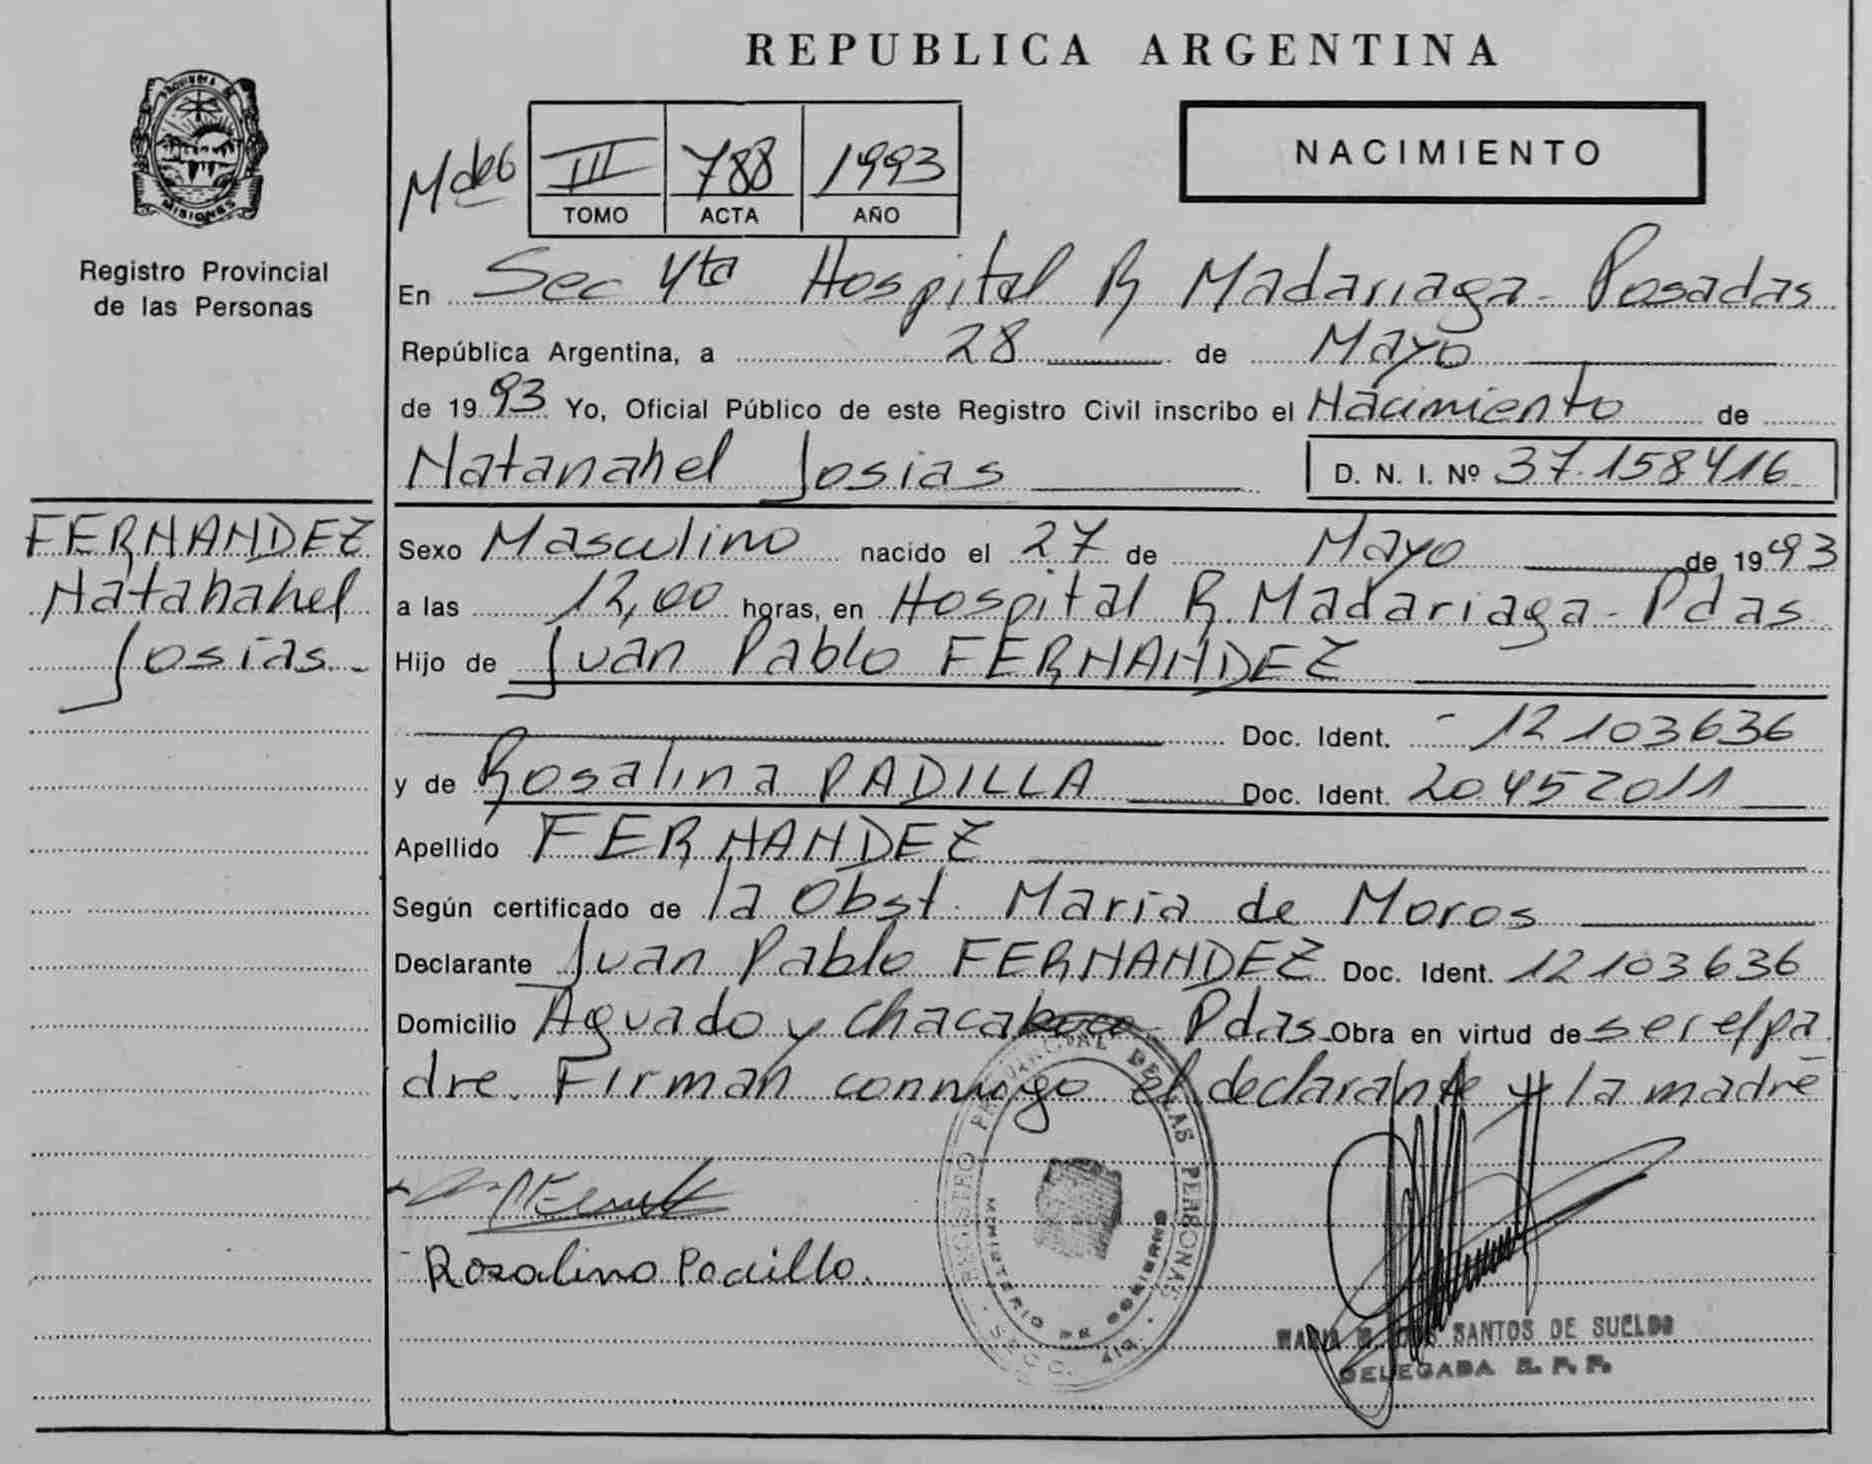 REPUBLICA ARGENTINA
PROVINCIA DE
MISIONES
Registro Provincial
de las Personas
III 788 1993
TOMO ACTA AÑO
NACIMIENTO
En Sec 4ta Hospital R Madariaga - Posadas
República Argentina, a 28 de Mayo
de 1993 Yo, Oficial Público de este Registro Civil inscribo el Nacimiento de
Natanahel Josias D. N. I. Nº 37.158416
FERNANDEZ
Natanahel
Josias.-
Sexo Masculino nacido el 27 de Mayo de 1993
a las 12,00 horas, en Hospital R. Madariaga - Pdas
Hijo de Juan Pablo FERNANDEZ
Doc. Ident. - 12103636
y de Rosalina PADILLA Doc. Ident. 20452011
Apellido FERNANDEZ
Según certificado de la Obst. Maria de Moros
Declarante Juan Pablo FERNANDEZ Doc. Ident. 12103636
Domicilio Aguado y Chacabuco - Pdas Obra en virtud de ser el pa
dre. Firman conmigo el declarante y la madre
Rosalina Padilla.
REGISTRO PROVINCIAL DE LAS PERSONAS
MINISTERIO DE GOBIERNO
SANTOS DE SUELDO
DELEGADA R. P. P.